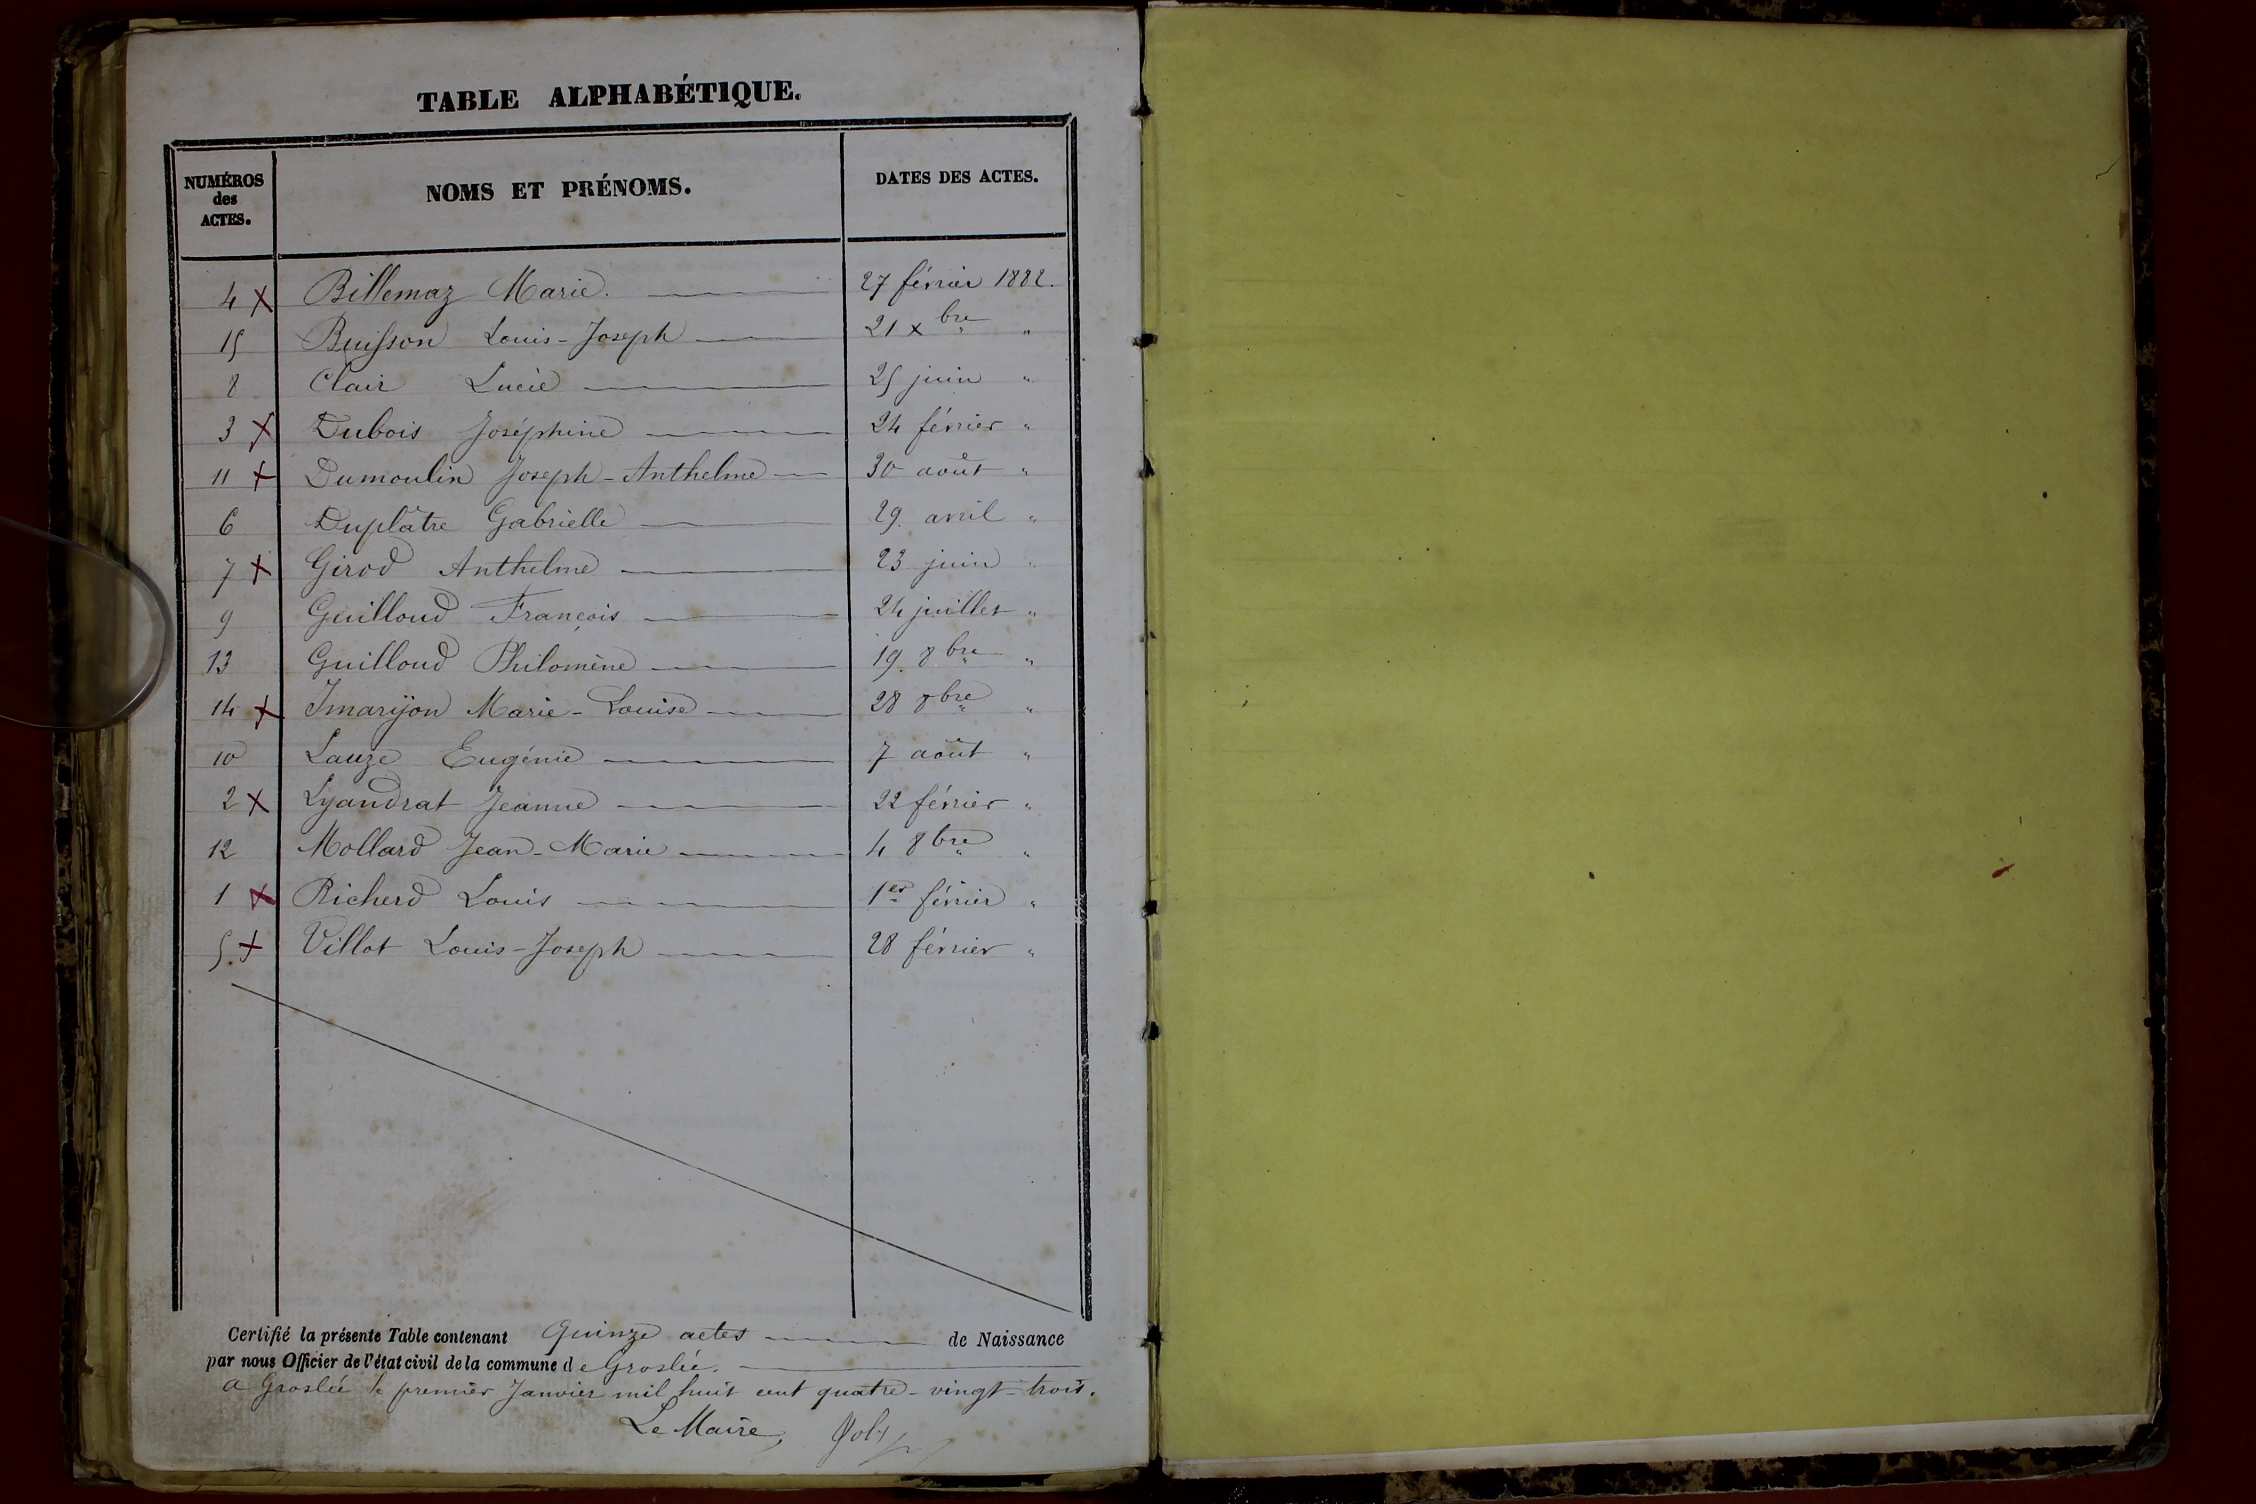 TABLE ALPHABÉTIQUE.
NUMÉROS des ACTES. NOMS ET PRÉNOMS. DATES DES ACTES.
4 x Billemaz Marie. 27 février 1882.
15 Buisson Louis-Joseph 21 xbre "
8 Clair Lucie 25 juin "
3 x Dubois Joséphine 24 février "
11 x Dumoulin Joseph-Anthelme 30 août "
6 Duplâtre Gabrielle 29. avril "
7 x Girod Anthelme 23 juin "
9 Guilloud François 24 juillet "
13 Guilloud Philomène 19. 8bre "
14 x Imarijon Marie-Louise 28 8bre "
10 Lauze Eugénie 7 août "
2 x Lyandrat Jeanne 22 février "
12 Mollard Jean-Marie 4 8bre "
1 x Richerd Louis 1er février "
5. x Villot Louis-Joseph 28 février "
Certifié la présente Table contenant Quinze actes de Naissance
par nous Officier de l'état civil de la commune de Groslée.
a Groslée le premier Janvier mil huit cent quatre-vingt-trois.
Le Maire,